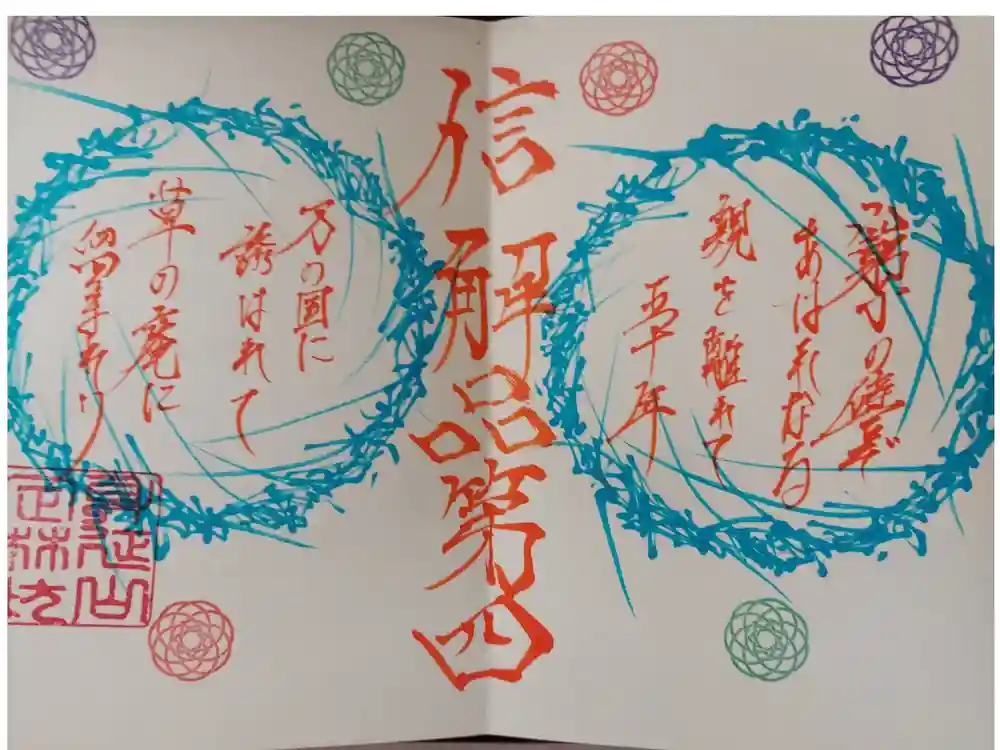 信解品第四
窮子の譬ぞ
あはれなる
親を離れて
五十年
万の国に
誘はれて
草の庵に
留まれり
身延山
定林坊